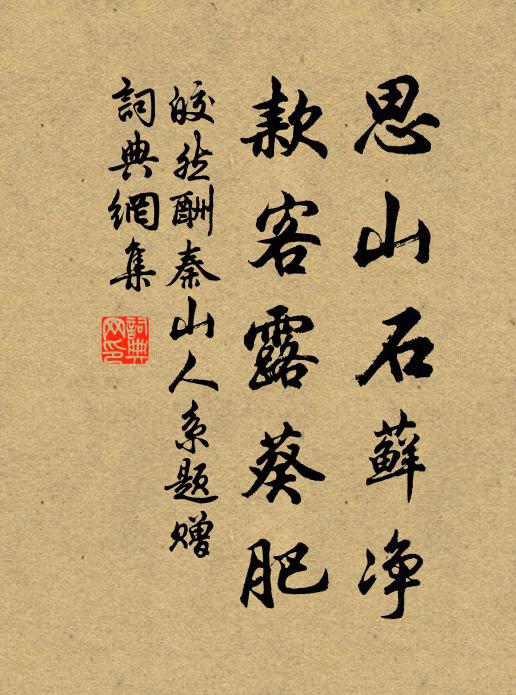 思山石蘚净
款客露葵肥
皎然酬秦山人系題赠
詞典網集
詞典网印